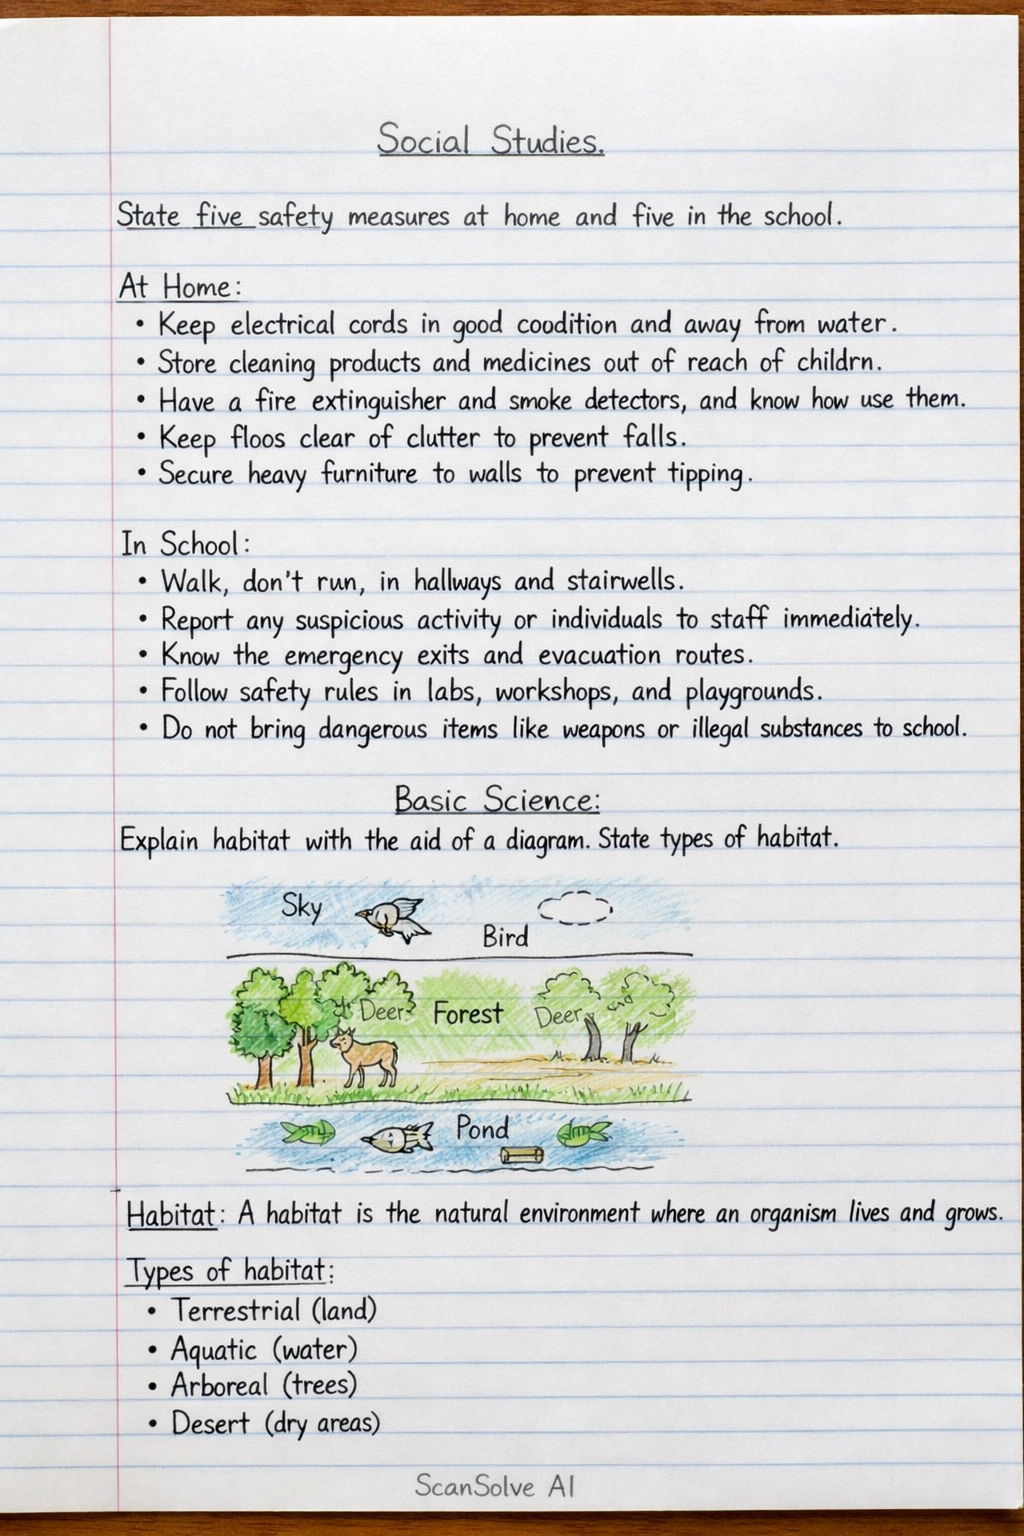 Social Studies.
State five safety measures at home and five in the school.
At Home:
• Keep electrical cords in good coodition and away from water.
• Store cleaning products and medicines out of reach of childrn.
• Have a fire extinguisher and smoke detectors, and know how use them.
• Keep floos clear of clutter to prevent falls.
• Secure heavy furniture to walls to prevent tipping.
In School:
• Walk, don't run, in hallways and stairwells.
• Report any suspicious activity or individuals to staff immediately.
• Know the emergency exits and evacuation routes.
• Follow safety rules in labs, workshops, and playgrounds.
• Do not bring dangerous items like weapons or illegal substances to school.
Basic Science:
Explain habitat with the aid of a diagram. State types of habitat.
Sky
Bird
Deer Forest Deer
Pond
Habitat: A habitat is the natural environment where an organism lives and grows.
Types of habitat:
• Terrestrial (land)
• Aquatic (water)
• Arboreal (trees)
• Desert (dry areas)
ScanSolve AI